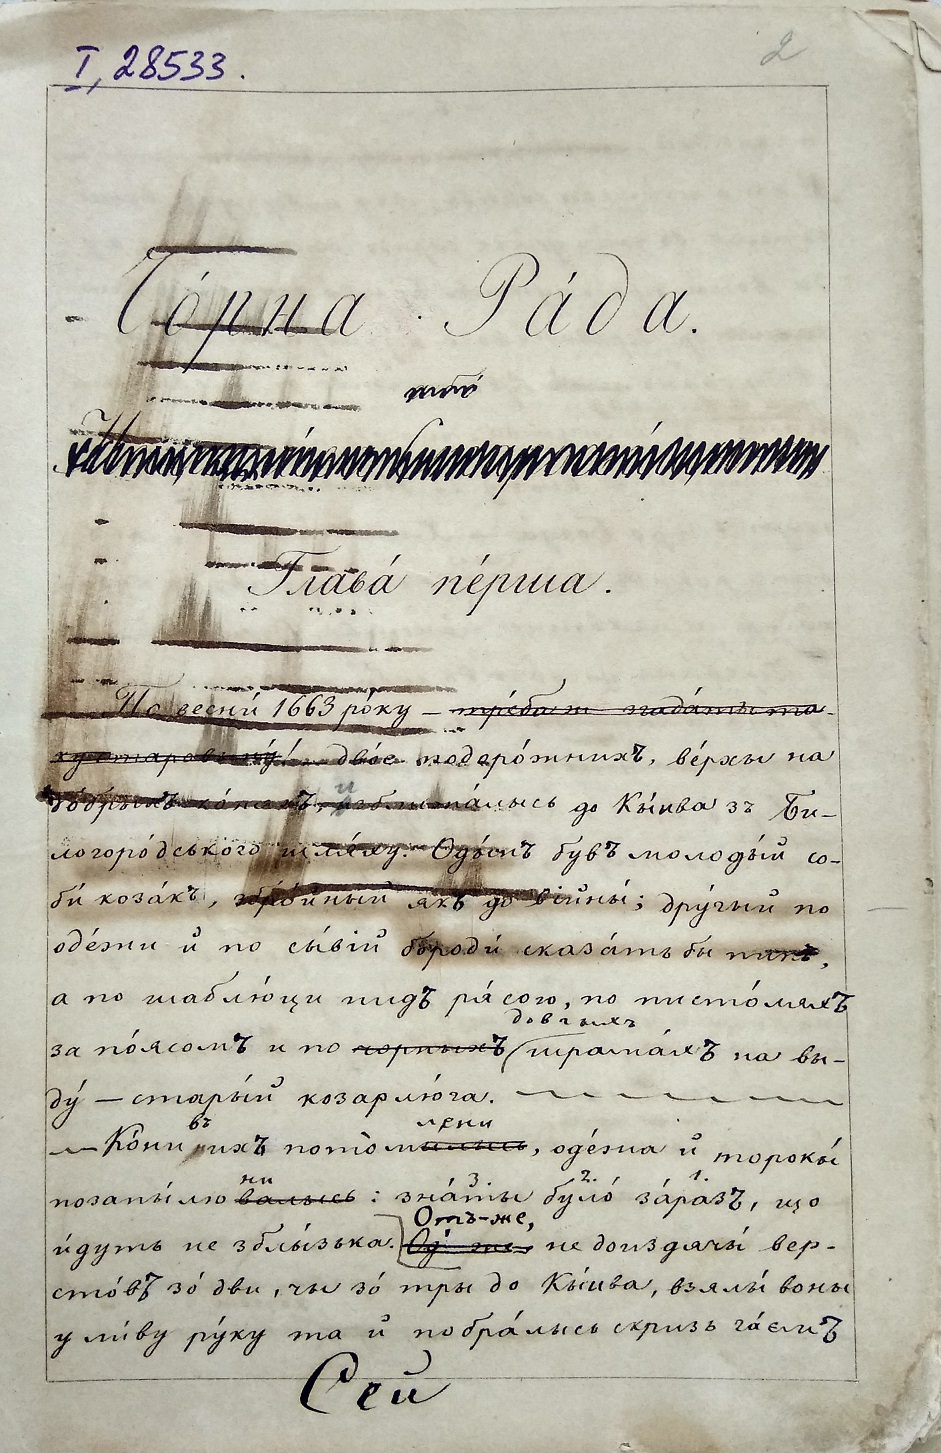 I, 28533.
2
Чо́рна Ра́да.
або́
Глава́ пе́рша.
По весни́ 1663 ро́ку —
дво́е подоро́жнихъ, ве́рхы на
до́брыхъ ко́няхъ, изблыжа́лысь до Кы́ива зъ Би-
логоро́дського шля́ху. Оды́нъ бувъ молоды́й со-
би́ коза́къ, збро́йный якъ до війны́; дру́гый по
оде́жи й по сы́вій бороди́ сказа́ть бы пипъ,
а по шаблю́ци пидъ ря́сою, по писто́ляхъ
довгыхъ
за по́ясомъ и по чорныхъ шрама́хъ на вы-
ду́ — стары́й козарлю́га.
въ лени
— Ко́ни ихъ потомылысь, оде́жа й торокы́
ни 3. 2. 1.
позапы́лювалысь: зна́ты було́ за́разъ, що
Отъ-же,
йдуть не зблы́зька. не доиздячы́ вер-
сто́въ зо́ дви, чы зо́ тры до Кы́ива, взялы́ воны
у ли́ву ру́ку та й побра́лысь скризь га́емъ
Сей